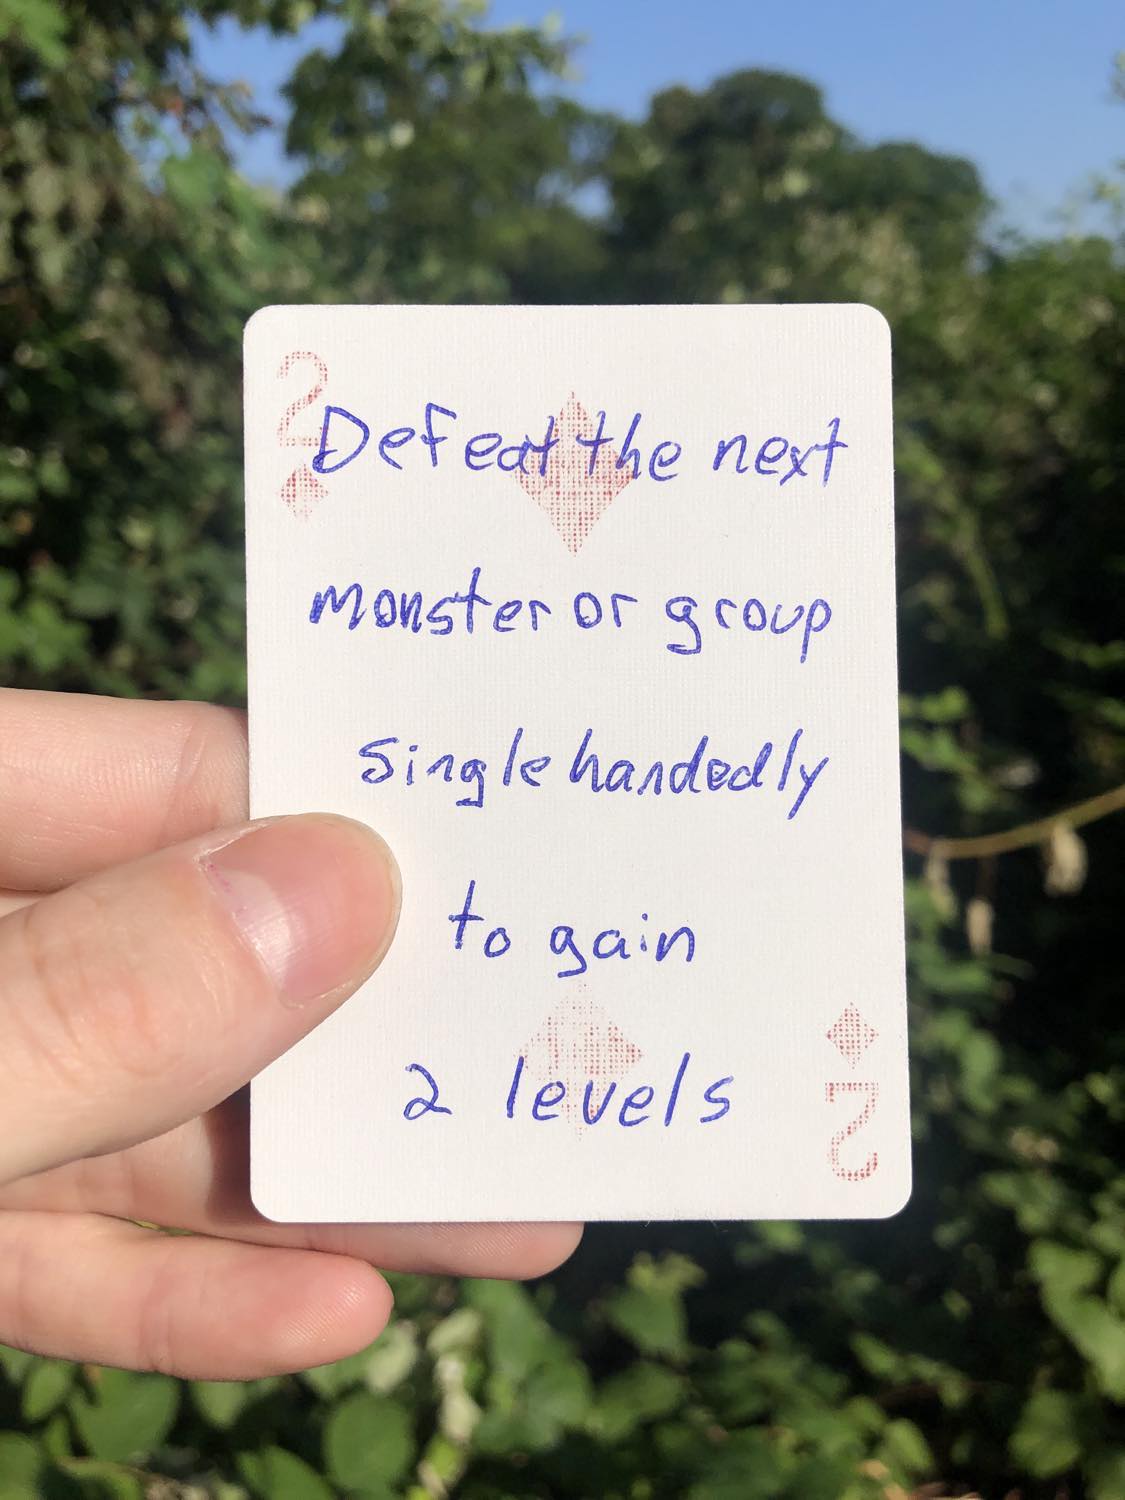 2
Defeat the next
monster or group
Single handedly
to gain
2 levels
2